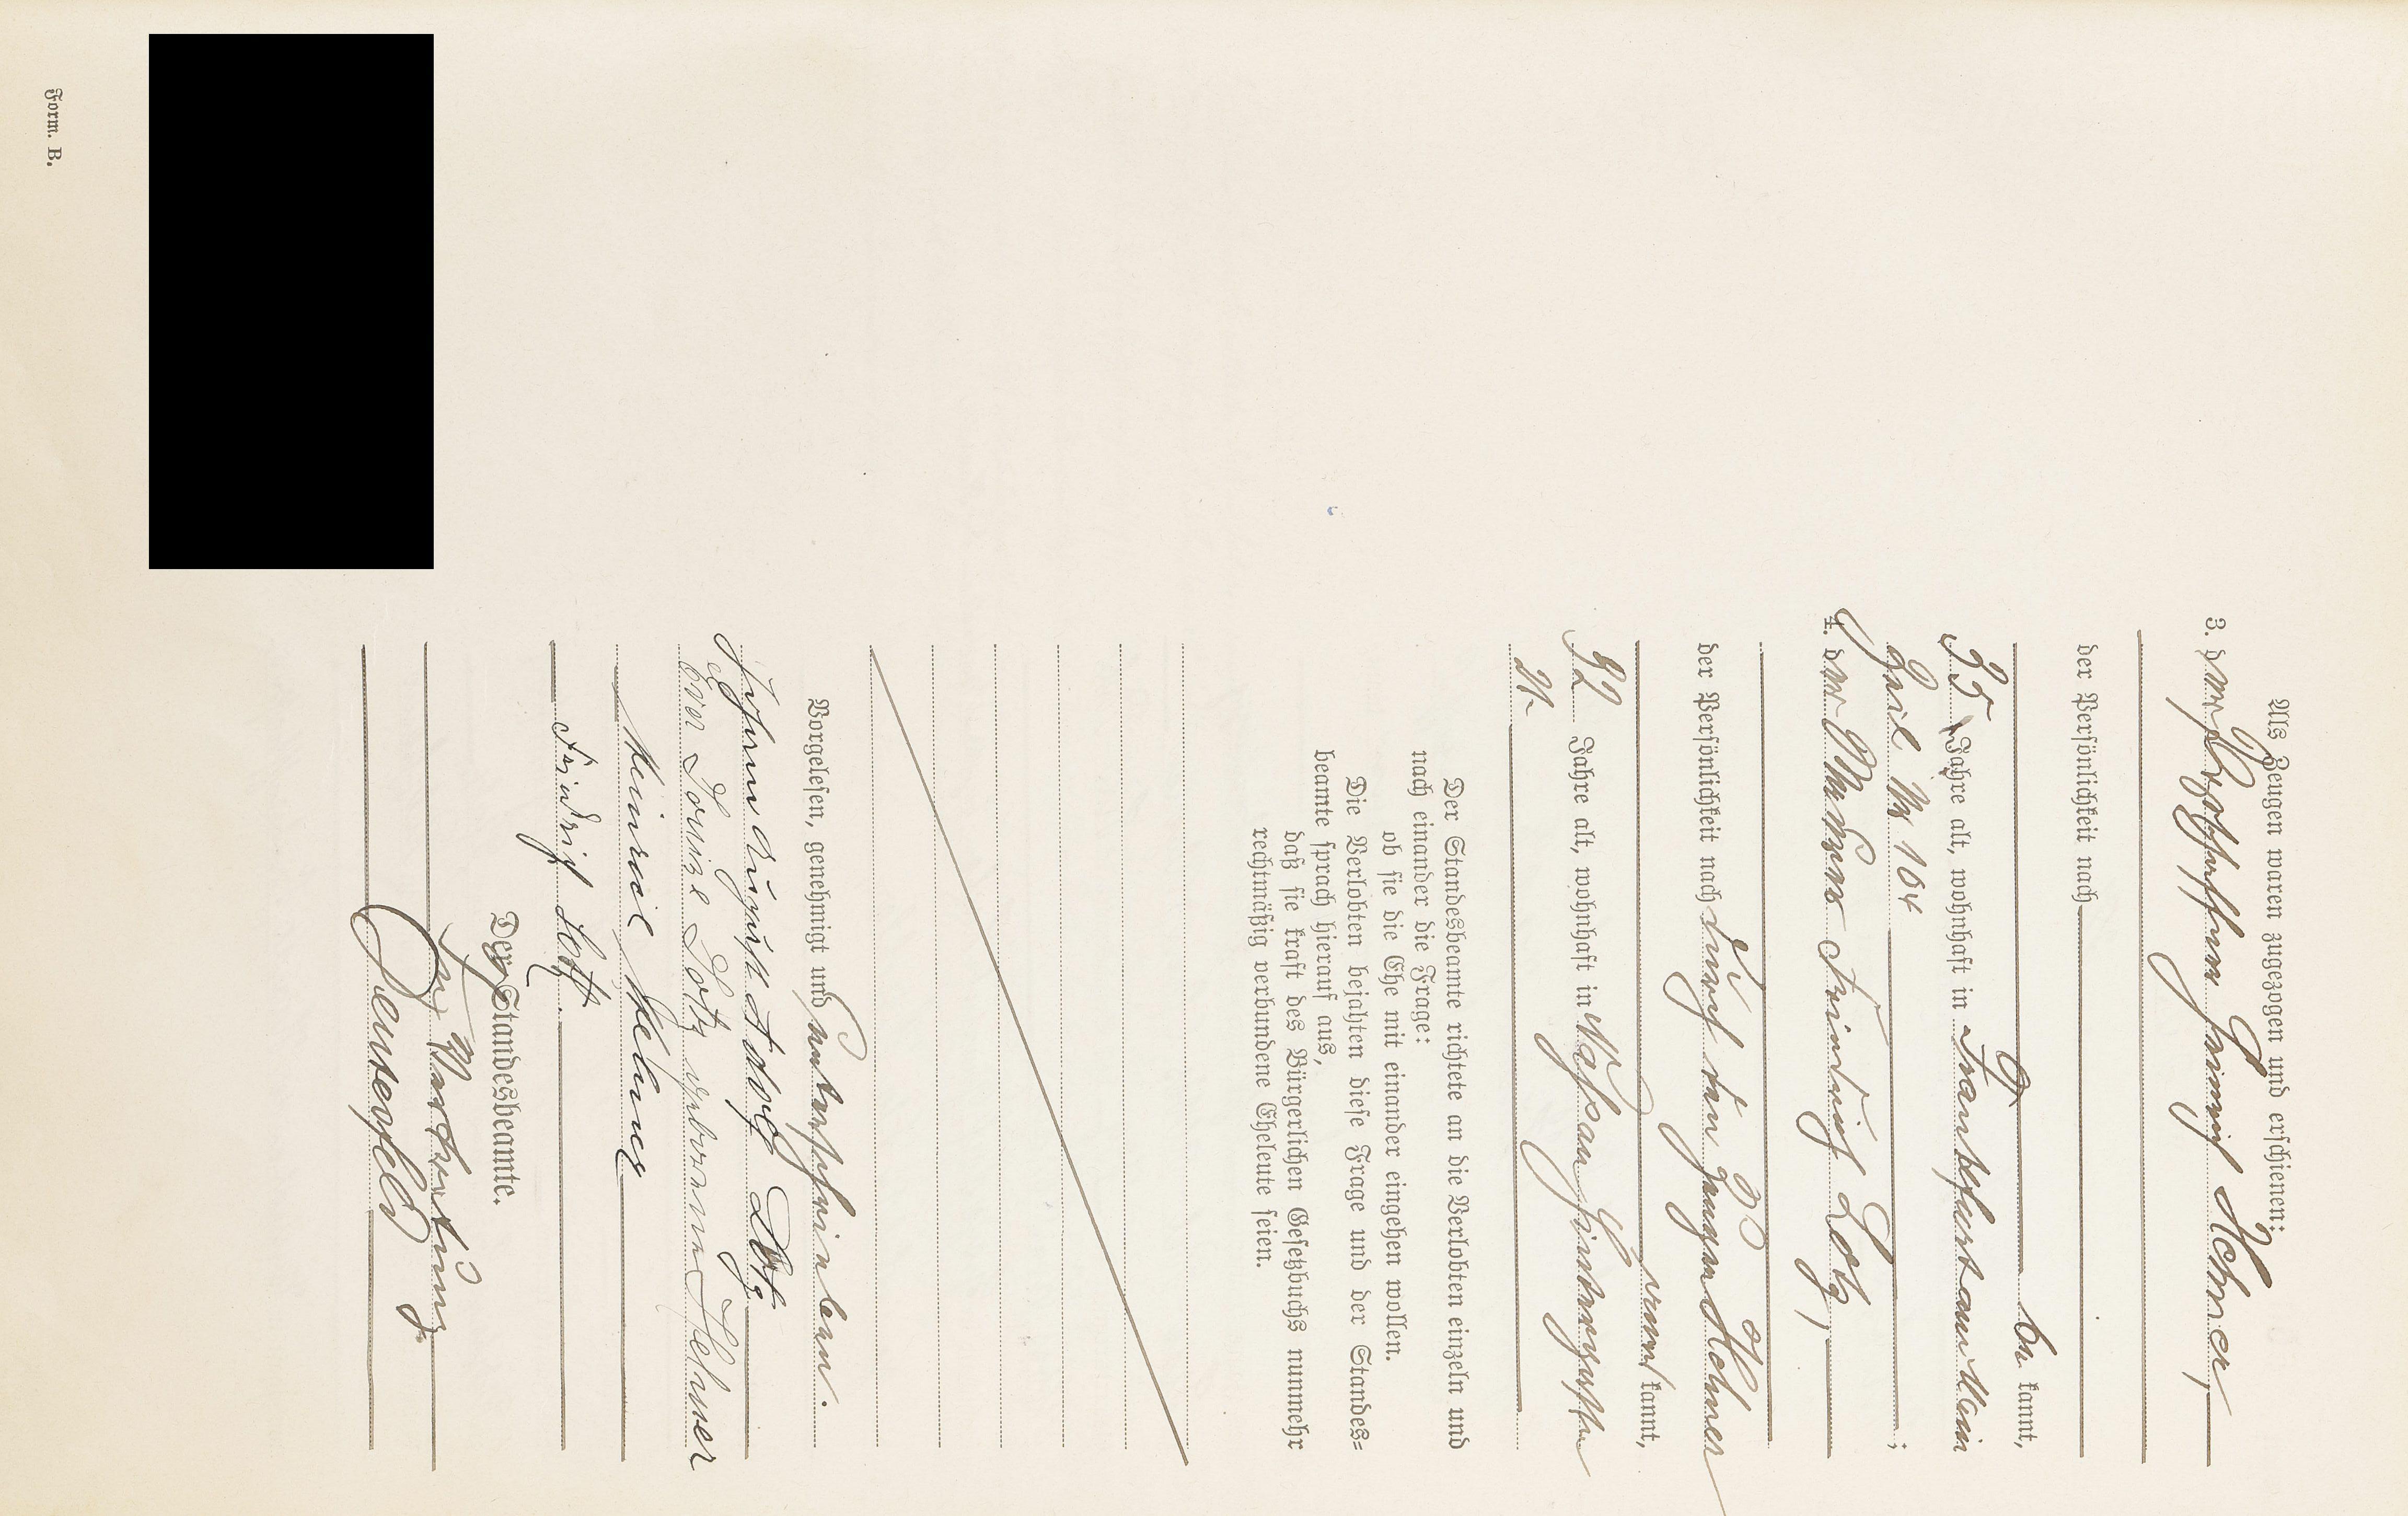 Als Zeugen waren zugezogen und erschienen:
3. der Heinrich Kehner,
der Persönlichkeit nach
be kannt,
35 Jahre alt, wohnhaft in Frankfurt am Main
Zeil No 104 ;
4. der Friedrich Lotz,
der Persönlichkeit nach durch den Zeugen Kehner
kannt,
Jahre alt, wohnhaft in
Der Standesbeamte richtete an die Verlobten einzeln und
nach einander die Frage:
ob sie die Ehe mit einander eingehen wollen.
Die Verlobten bejahten diese Frage und der Standes-
beamte sprach hierauf aus,
daß sie kraft des Bürgerlichen Gesetzbuchs nunmehr
rechtmäßig verbundene Eheleute seien.
Vorgelesen, genehmigt und unterschrieben.
August Adolf Lotz
Louise Lotz geborene Kehner
Heinrich Kehner
Friedrich Lotz.
Der Standesbeamte.
In Vertretung
Form. B.